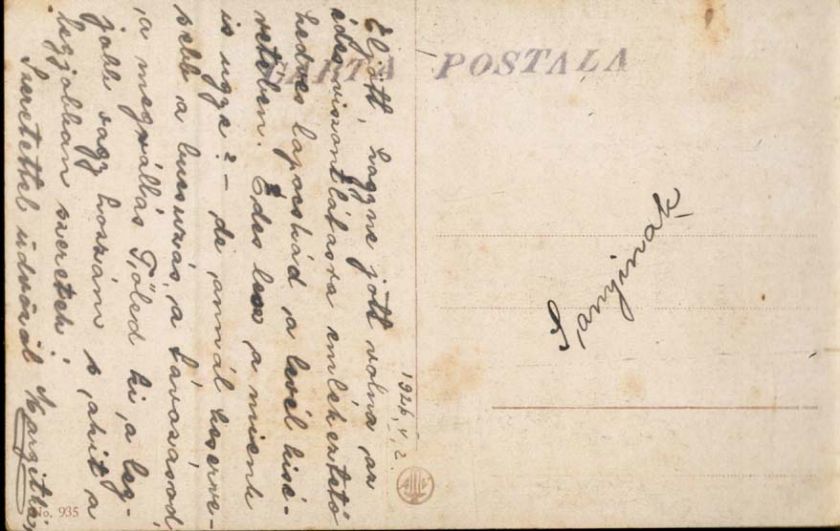 CARTA POSTALA
Eljött, hagyne jött volna, az
édes viszontlátásra emlékeztető
kedves lapocskád, a levél kisé-
retében. Édes lesz a mienk
is ugye? – de annál keserve-
sebb a bucsuzás, a távozásod,
a megválás Tőled ki a leg-
jobb vagy hozzám s akit a
legjobban szeretek!
Szeretettel üdvözöl Margitkád
1926. V. 2.
Sanyinak
No. 935